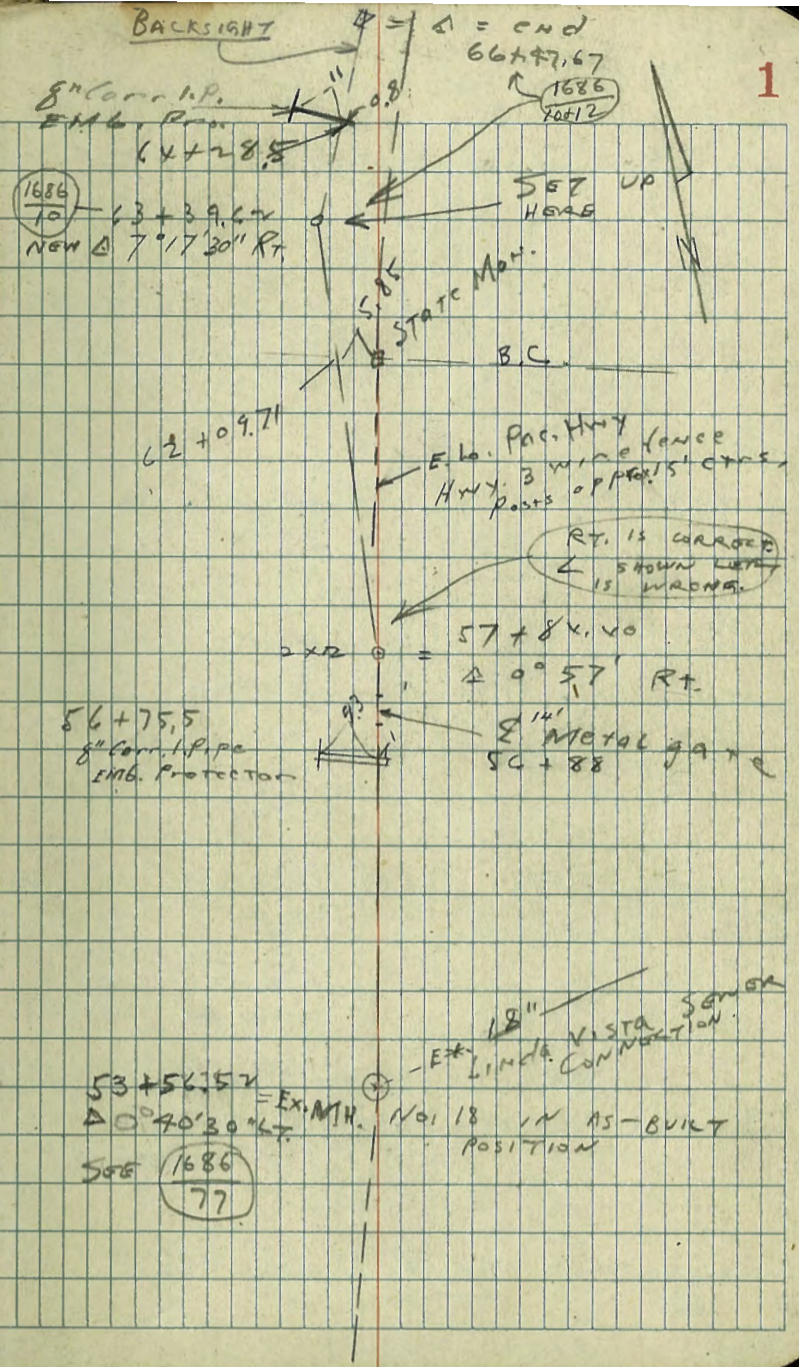 BACKSIGHT
= Δ = end
66+47.67
1686
10+12
1
8" Corr. I.P.
EMB. Pro.
11
0.8
64+28.5
1686
10
63+39.62
NEW Δ 7°17'30" Rt.
SET UP
HERE
5.85
State Mon.
B.C.
62+09.71
E. Lo. Pac. Hwy
Hwy. 3 wire fence
Posts approx. 15' ctrs.
RT. IS CORRECT.
∠ SHOWN LEFT
IS WRONG.
2x2
= 57+84.40
Δ 0°57' Rt.
56+75.5
8" Corr. I. Pipe
EMB. Protector
9?
1'
℄ 14' Metal gate
56+88
18"
Ex. Linda Vista SEWER
CONNECTION
53+56.52 = Ex. MH. No. 18 IN AS-BUILT
POSITION
Δ 0°40'30" LT.
SEE 1686
77